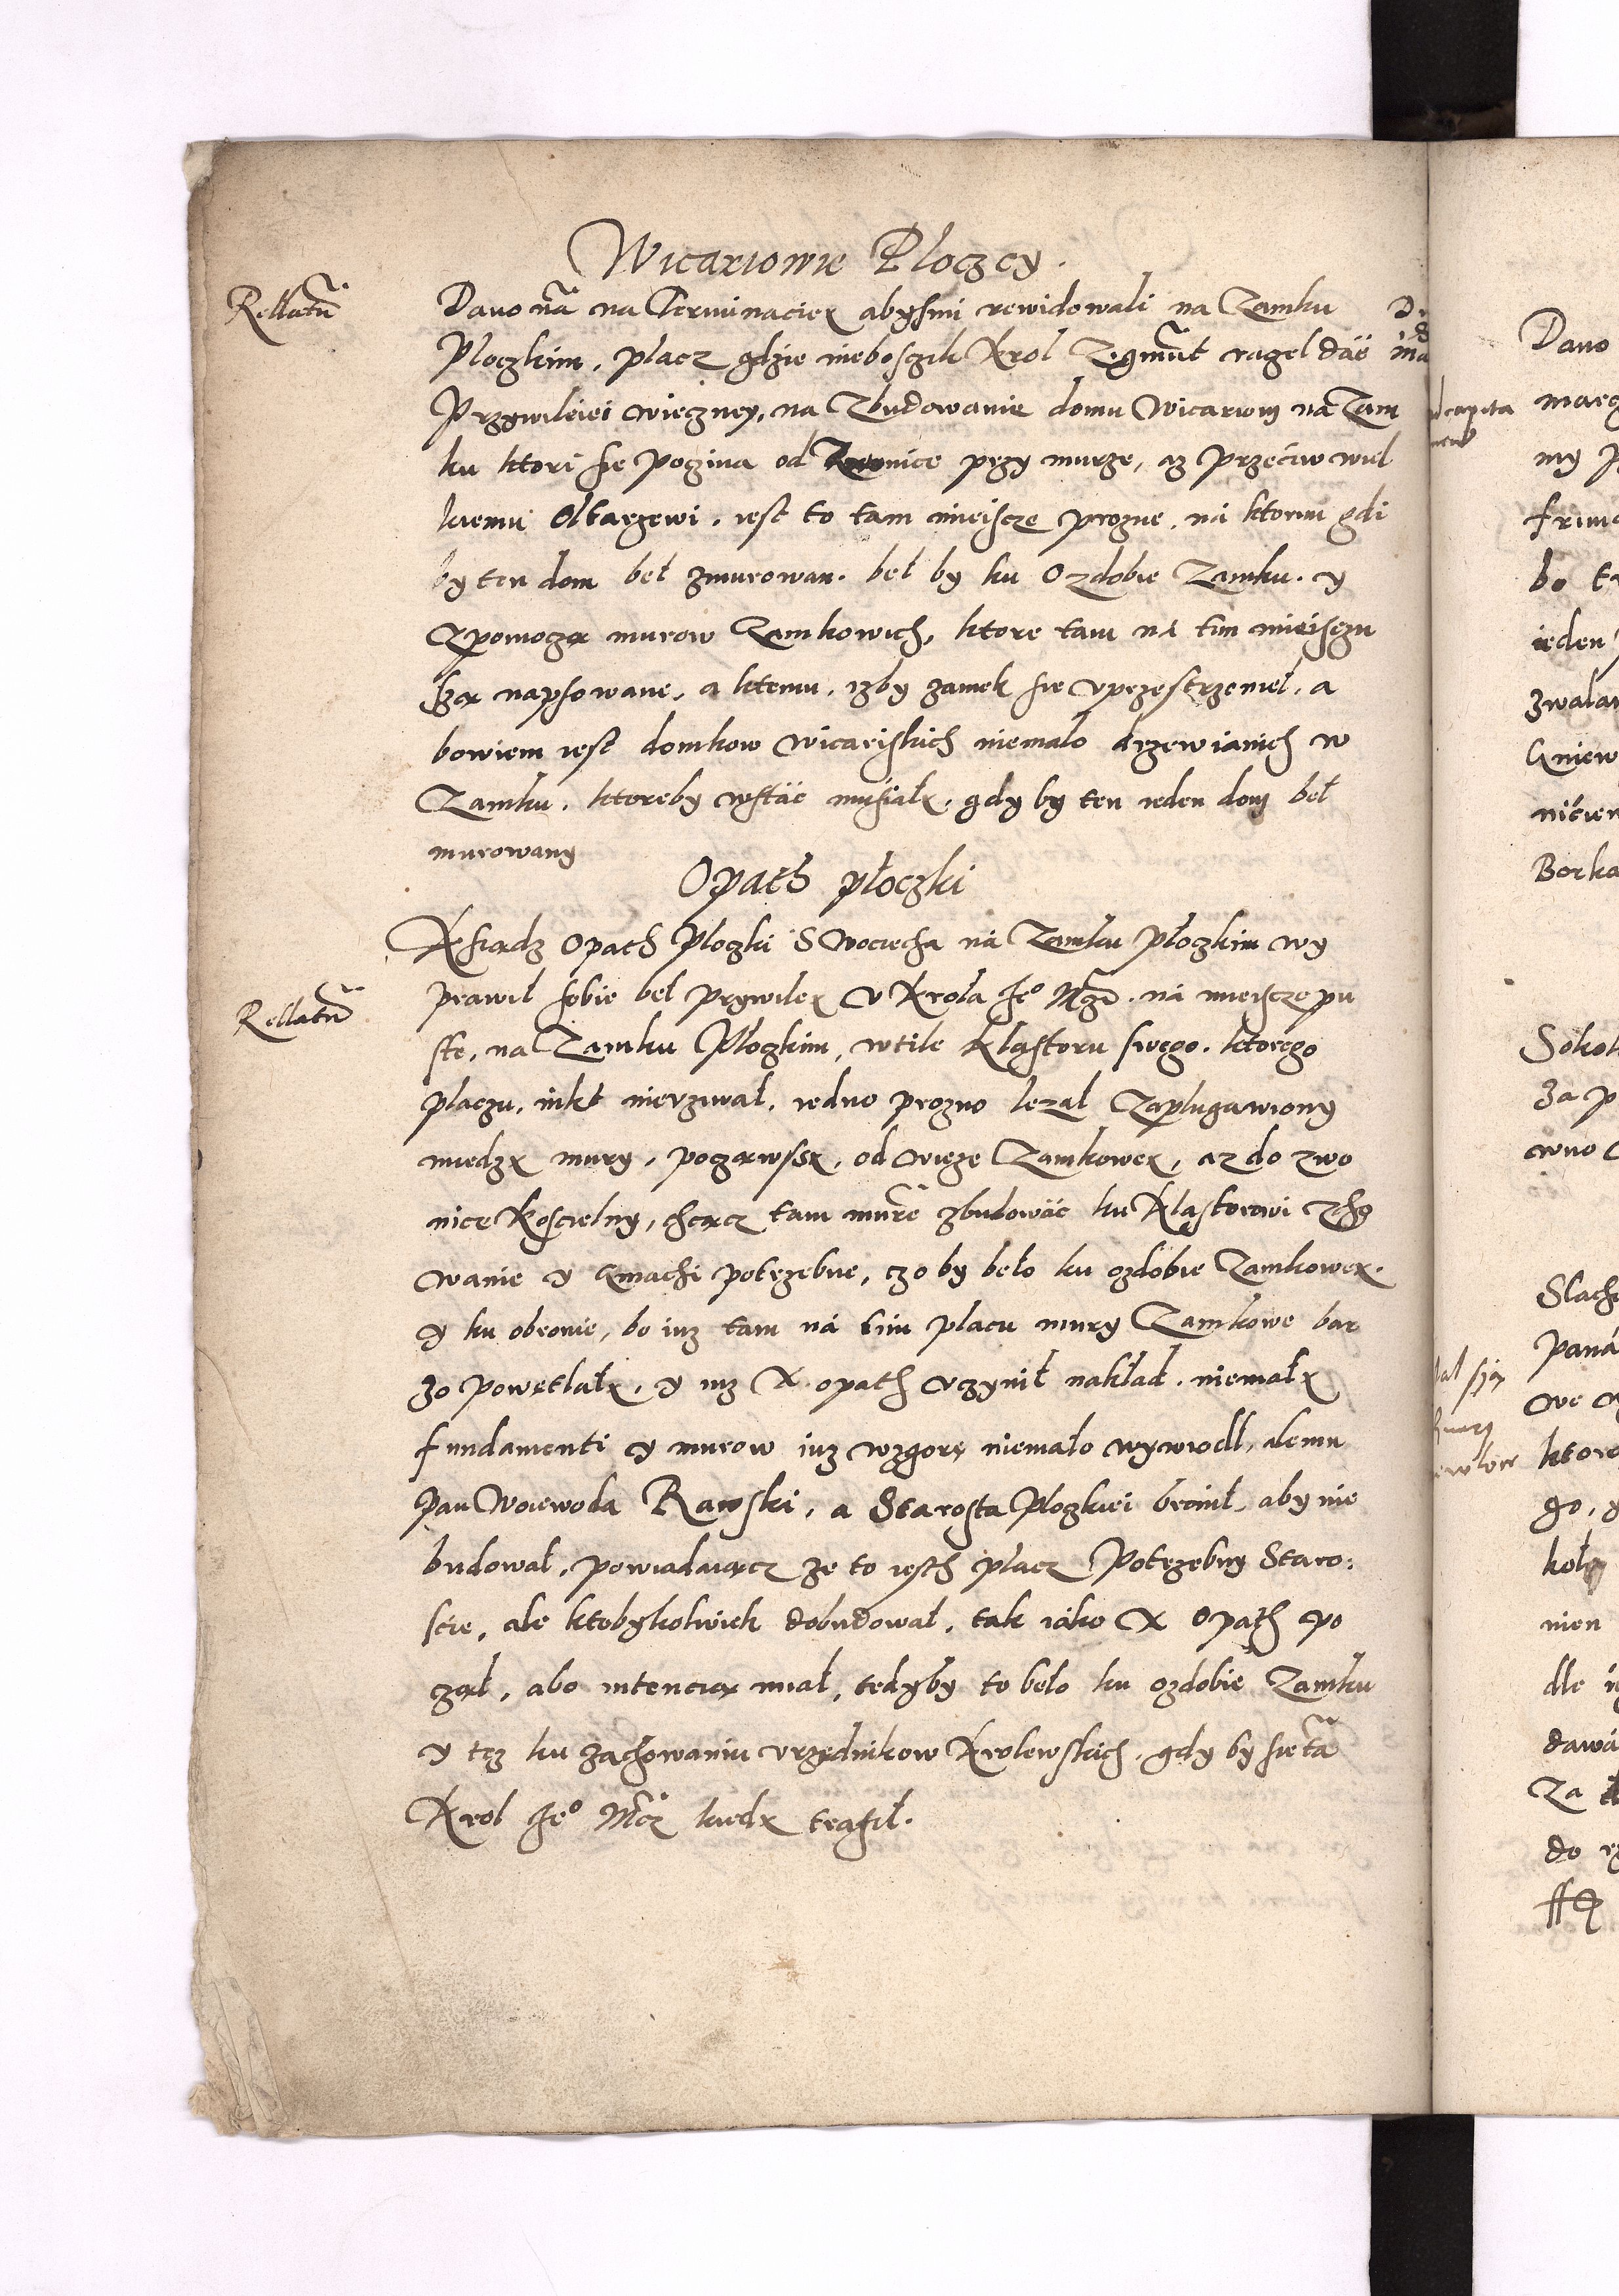 Wicariowie Ploczcy.
Rellatũ
Dano nã na Terminacięx abyſmi rewidowali na Zamku
Ploczkim, placz gdzie nieboſczik Krol Zigmũt raczel dać
Przywileiei wieczney, na Zbudowanie domu Wicariom na Zam
ku ktori ſie poczina od Zwonice przy murze, az przeciw wiel
kiemu Oltarzewi, ieſt to tam mieiſcze prozne, ná ktorim gdi
by ten dom beł zmurowan. beł by ku Ozdobie Zamku. y
Zpomocżą murow Zamkowich, ktore tam ná tim mieiſczu
ſzą napſowane, a ktemu, izby zamek ſie vprzeſtrzenieł, a
bowiem ieſt domkow wicariſkich niemało drzewianich w
Zamku, ktoreby wſtäc muſiałÿ, gdy by ten ieden dom beł
murowany
Opath płoczki
Kſiądz Opath Ploczki S Wociecha ná Zamku płoczkim wy
Rellatũ
prawił ſobie beł prziwilei v Krola Jeº Mczi. ná mieiſcze pu
ſte, na Zamku Płoczkim, wtile Klaſtoru ſwego. ktorego
placzu, nikt nievziwał, iedno prozno lezał Zaplugawiony
miedzy mury, począwſſy, od wieze Zamkowey, az do zwo
nice Koſcielny, chcącz tam murẽ zbudowäc ku Klaſtorowi Zcho
wanie y Gmachi potrzebne, czo by beło ku ozdobie Zamkowey.
y ku obronie, bo iuz tam ná tim placu mury Zamkowe bar
zo powętlały, y iuz X. opath vczynił nakład. niemały
fundamenti y murow iuz wzgorę niemało wywiodl, alemu
Pan Woiewoda Rawſki, a Staroſta Ploczkiei bronił, aby nie
budował, powiadaiącz ze to ieſth placz Potrzebny Staro:
ſcie, ale ktobykolwiek dobudował, tak iáko X Opath po
cząl, abo intencią miał, tedyby to beło ku ozdobie Zamku
y tez ku zachowaniu vrzędnikow Krolewſkich, gdy by ſie tã
Krol Jeº Mcz kiedy trafił.